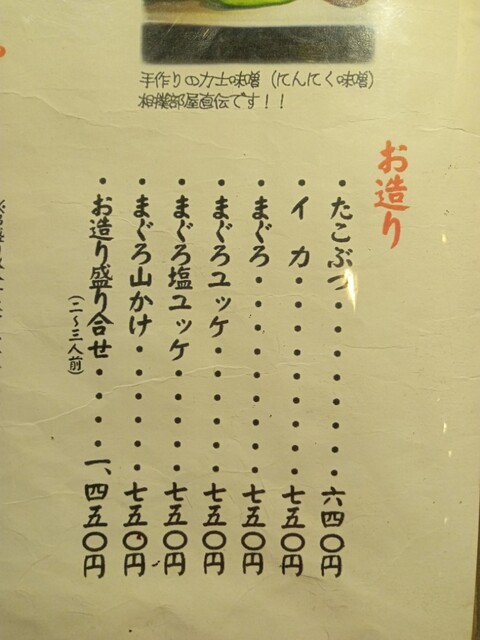 手作りの力士味噌(にんにく味噌)
相撲部屋直伝です！！
お造り
・たこぶつ・・・・・・・・六四〇円
・イカ・・・・・・・・・七五〇円
・まぐろ・・・・・・・・・七五〇円
・まぐろユッケ・・・・・・七五〇円
・まぐろ塩ユッケ・・・・・七五〇円
・まぐろ山かけ・・・・・・七五〇円
・お造り盛り合せ・・・・一、四五〇円
(二〜三人前)